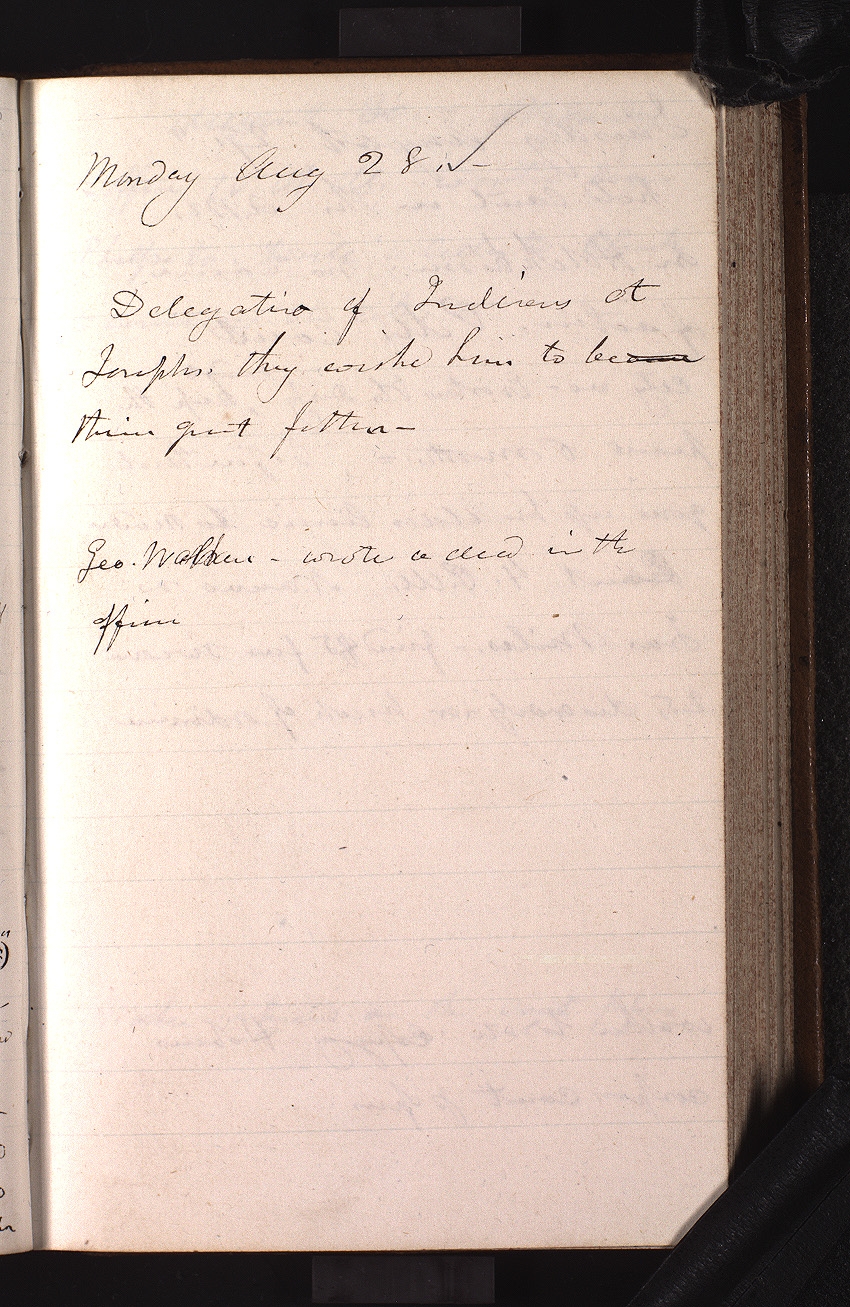 Monday Aug 28.✓–
Delegatio of Indians at
Josephs. they wishe him to be
their great father–
Geo. Walker – wrote a deed in the
office